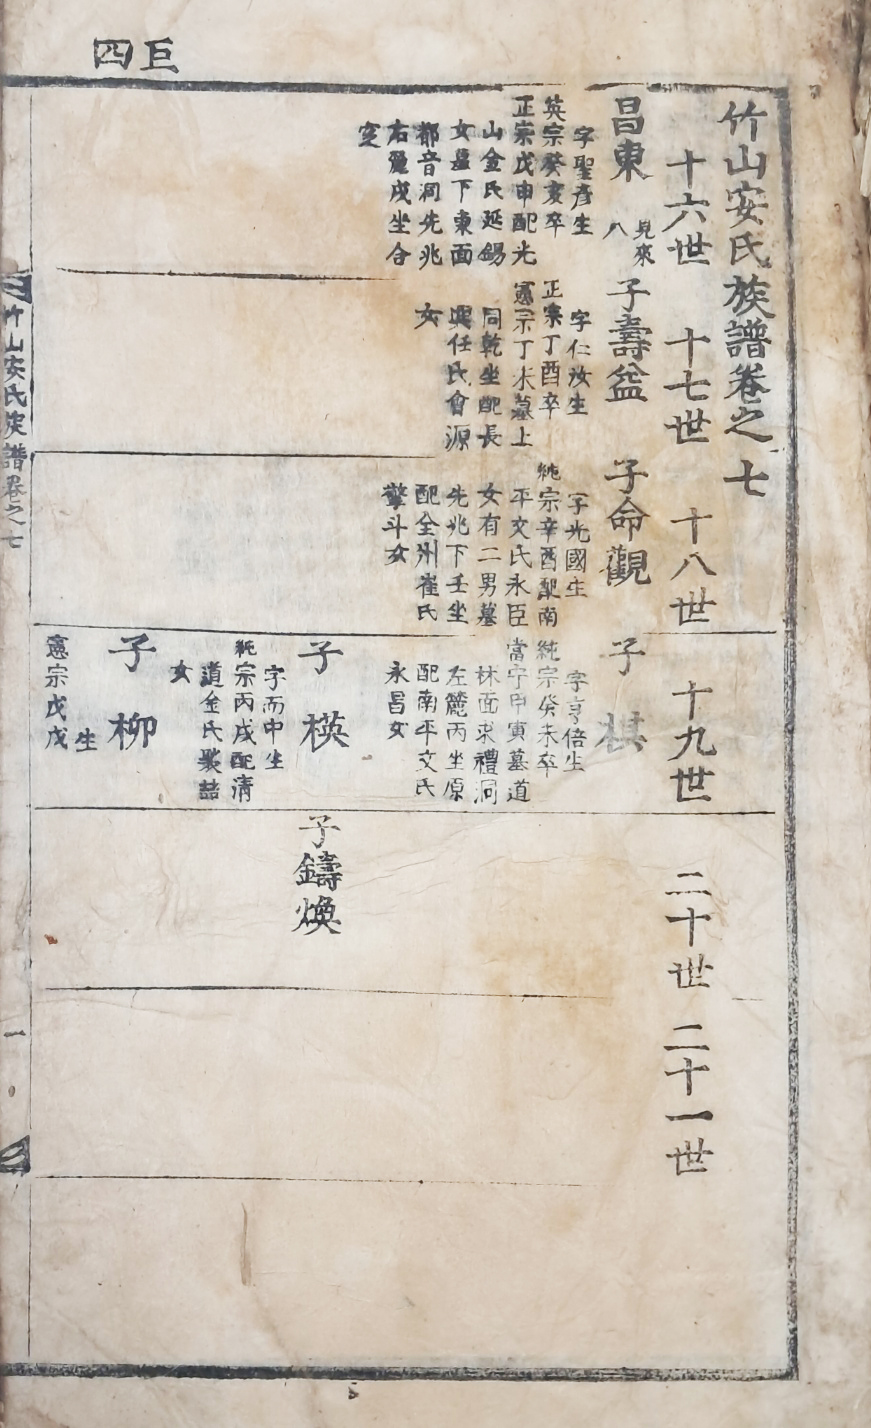 四巨
竹山安氏族譜卷之七
十六世
十七世
十八世
十九世
二十世
二十一世
昌東
見來
八
字聖彥生
英宗癸亥卒
正宗戊申配光
山金氏延錫
女墓下東面
都音洞先兆
右麓戌坐合
窆
子壽益
字仁汝生
正宗丁酉卒
憲宗丁未墓上
同乾坐配長
興任氏會源
女
子命觀
字光國生
純宗辛酉配南
平文氏永臣
女有二男墓
先兆下壬坐
配全州崔氏
擎斗女
子棋
字亨倍生
純宗癸未卒
當宁甲寅墓道
林面求禮洞
左麓丙坐原
配南平文氏
永昌女
子楧
字而中生
純宗丙戌配清
道金氏聚喆
女
子鑄煥
子柳
生
憲宗戊戌
竹山安氏族譜卷之七
一